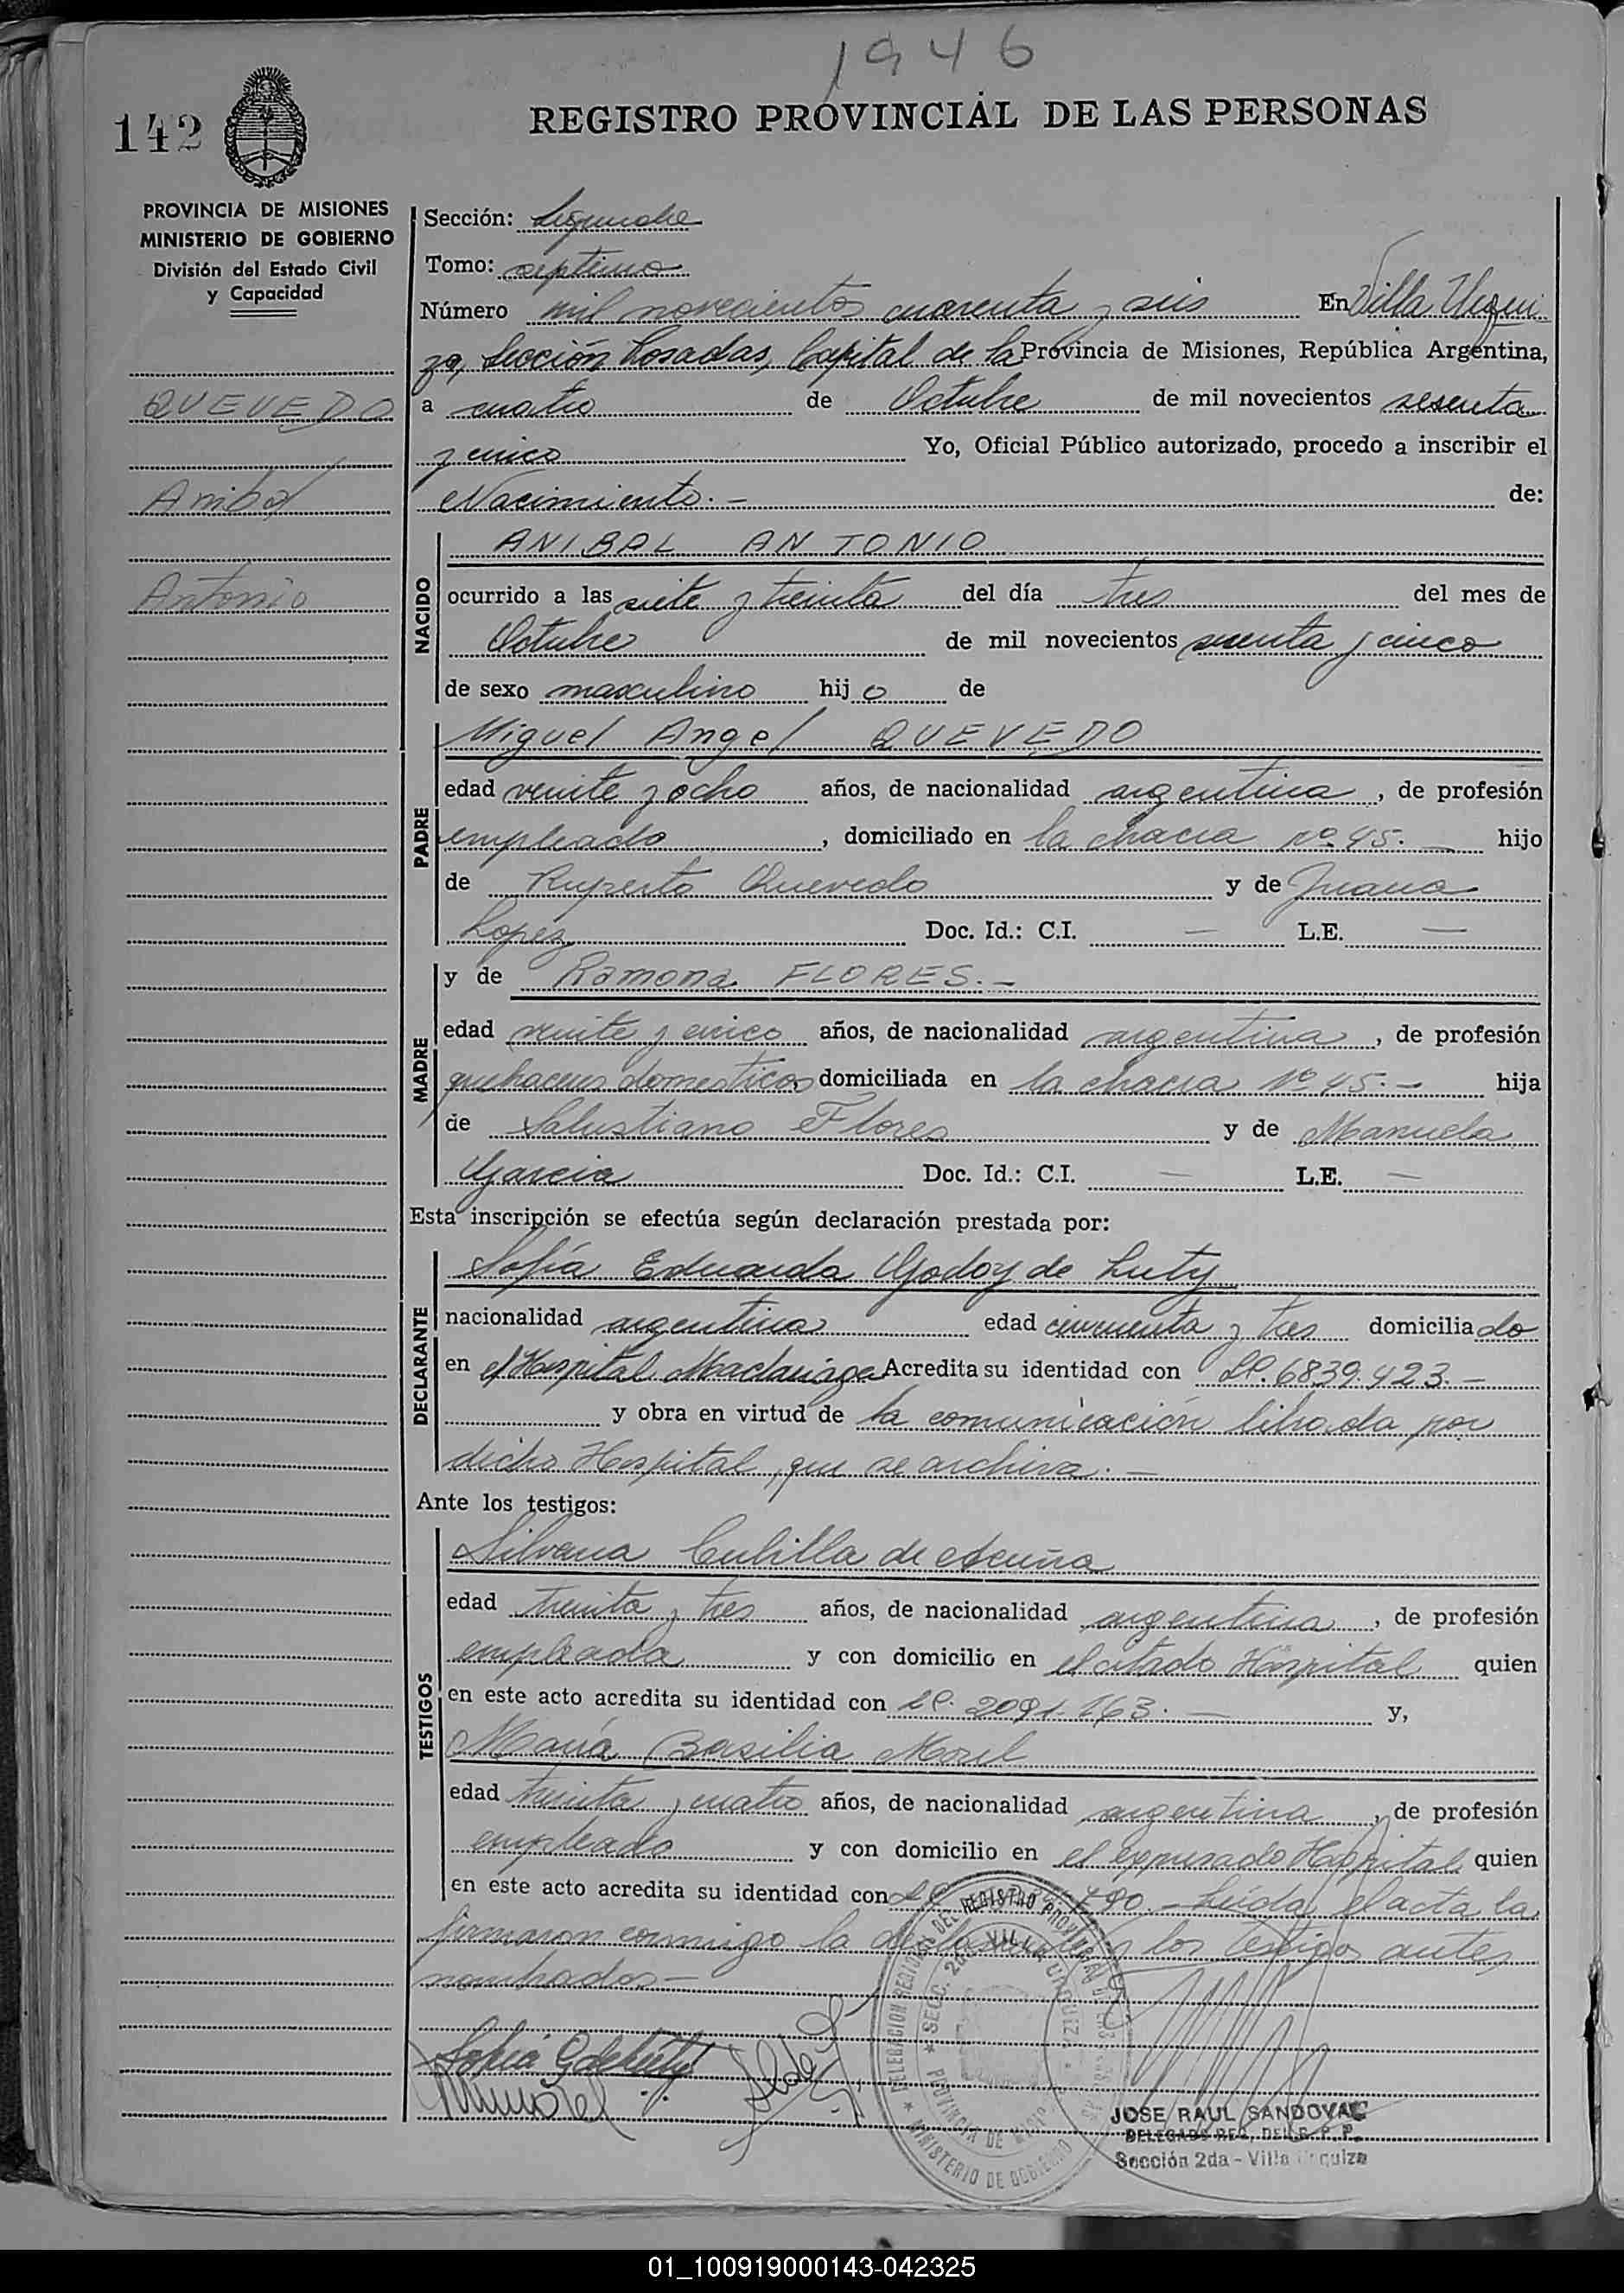 1946
142
REGISTRO PROVINCIAL DE LAS PERSONAS
PROVINCIA DE MISIONES
MINISTERIO DE GOBIERNO
División del Estado Civil
y Capacidad
QUEVEDO
Anibal
Antonio
Sección: Segunda
Tomo: septimo
Número mil novecientos cuarenta y seis En Villa Urqui
za, Sección Posadas, Capital de la Provincia de Misiones, República Argentina,
a cuatro de Octubre de mil novecientos sesenta
y cinco Yo, Oficial Público autorizado, procedo a inscribir el
Nacimiento.- de:
NACIDO
ANIBAL ANTONIO
ocurrido a las siete y treinta del día tres del mes de
Octubre de mil novecientos sesenta y cinco
de sexo masculino hijo de
PADRE
Miguel Angel QUEVEDO
edad veinte y ocho años, de nacionalidad argentina, de profesión
empleado, domiciliado en la chacra Nº 45.- hijo
de Ruperto Quevedo y de Juana
Lopez Doc. Id.: C.I. — L.E. —
MADRE
y de Ramona FLORES.-
edad veinte y cinco años, de nacionalidad argentina, de profesión
quehaceres domesticos domiciliada en la chacra Nº 45.- hija
de Salustiano Flores y de Manuela
Garcia Doc. Id.: C.I. — L.E. —
Esta inscripción se efectúa según declaración prestada por:
DECLARANTE
Sofía Eduarda Godoy de Luty
nacionalidad argentina edad cincuenta y tres domiciliado
en el Hospital Madariaga Acredita su identidad con 6839.423.-
y obra en virtud de la comunicación librada por
dicho Hospital, que se archiva.-
Ante los testigos:
TESTIGOS
Silveria Cubilla de Acuña
edad treinta y tres años, de nacionalidad argentina, de profesión
empleada y con domicilio en el citado Hospital quien
en este acto acredita su identidad con 2091.163.- y,
María Basilia Morel
edad treinta y cuatro años, de nacionalidad argentina, de profesión
empleada y con domicilio en el expresado Hospital quien
en este acto acredita su identidad con 490.- Leída el acta la
firmaron conmigo la declarante y los testigos antes
nombrados-
DELEGACION REGIONAL DEL REGISTRO PROVINCIAL DE LAS PERSONAS
MINISTERIO DE GOBIERNO
SECC. 2da. VILLA URQUIZA
PROVINCIA DE MISIONES
JOSE RAUL SANDOVAL
DELEGADO REG. DEL R. P. P.
Sección 2da - Villa Urquiza
01_100919000143-042325